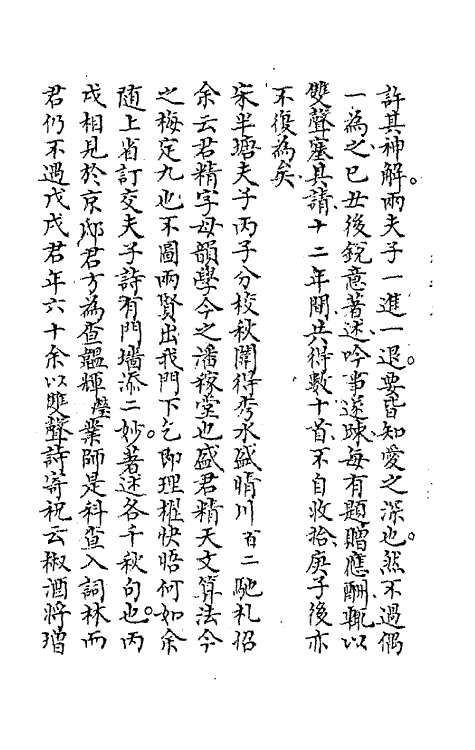 許其神解。兩夫子一進一退。要皆知愛之深也。然不過偶
一為之。己丑後銳意著述。吟事遂疎。每有題贈應酬。輒以
雙聲塞其請。十二年間。共得數十首。不自收拾。庚子後亦
不復為矣
宋半塘夫子丙子分校秋闈得秀水盛晴川百二馳札招
余云君精字母韻學今之潘稼堂也盛君精天文算法今
之梅定九也不圖兩賢出我門下乞即理櫂快晤何如余
隨上省訂交夫子詩有門墻添二妙。著述各千秋句也。丙
戌相見於京邸君方為查韞輝瑩業師是科查入詞林而
君仍不遇戊戌君年六十余以雙聲詩寄祝云椒酒將增